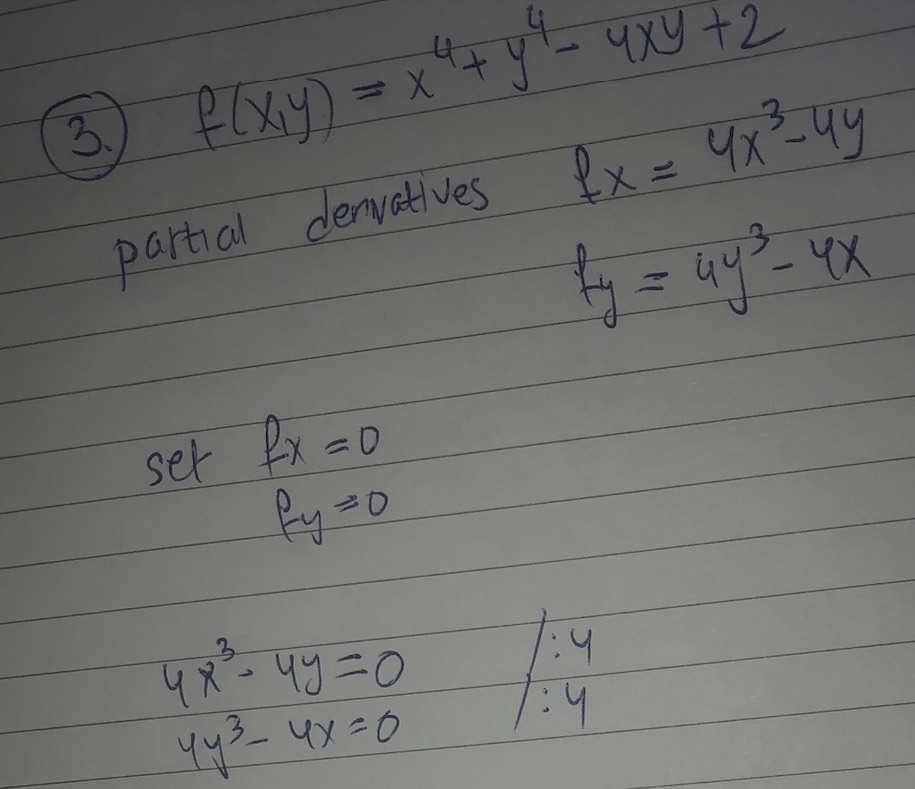 3. f(x,y) = x⁴ + y⁴ - 4xy + 2
partial derivatives fx = 4x³ - 4y
fy = 4y³ - 4x
set fx = 0
fy = 0
4x³ - 4y = 0 /:4
4y³ - 4x = 0 /:4